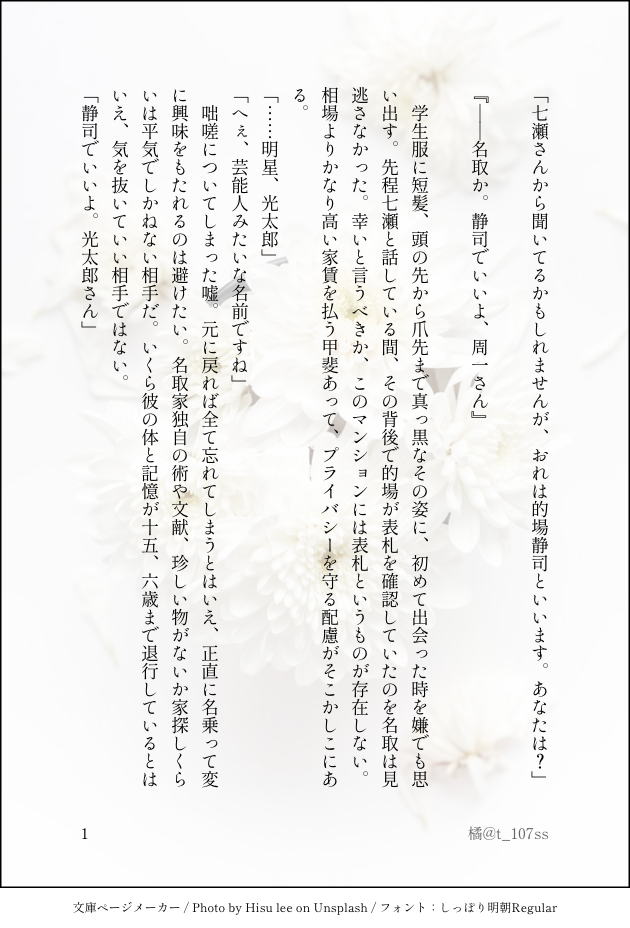 「七瀬さんから聞いてるかもしれませんが、おれは的場静司といいます。あなたは？」
『――名取か。静司でいいよ、周一さん』
学生服に短髪、頭の先から爪先まで真っ黒なその姿に、初めて出会った時を嫌でも思
い出す。先程七瀬と話している間、その背後で的場が表札を確認していたのを名取は見
逃さなかった。幸いと言うべきか、このマンションには表札というものが存在しない。
相場よりかなり高い家賃を払う甲斐あって、プライバシーを守る配慮がそこかしこにあ
る。
「……明星、光太郎」
「へぇ、芸能人みたいな名前ですね」
咄嗟についてしまった嘘。元に戻れば全て忘れてしまうとはいえ、正直に名乗って変
に興味をもたれるのは避けたい。名取家独自の術や文献、珍しい物がないか家探しくら
いは平気でしかねない相手だ。いくら彼の体と記憶が十五、六歳まで退行しているとは
いえ、気を抜いていい相手ではない。
「静司でいいよ。光太郎さん」
1
橘@t_107ss
文庫ページメーカー / Photo by Hisu lee on Unsplash / フォント：しっぽり明朝Regular